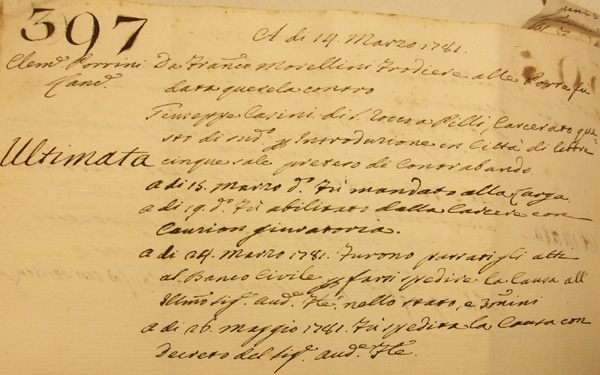 397
A di 14. Marzo 1781.
Clem.e Porrini Da Franc.o Morellini Frodiere alle Porte fu
Canc.e data querela contro
Giuseppe Casini di S. Rocco a Pilli, Carcerato que-
sto di sud.o p Introduzione in Città di libbre
Ultimata cinque sale preteso di Contrabando.
a di 15. Marzo d.o Fù mandato alla Larga
a di 19. d.o Fù abilitato dalla Carcere con
Cauzion giuratoria.
a di 24. Marzo 1781. Furono passati gli atti
al Banco Civile p farsi spedire la Causa all'
Illmo sig.r Aud.e nello stato, e
a di 26. Maggio 1781. Fù spedita la Causa con
Decreto del sig.r Aud.e